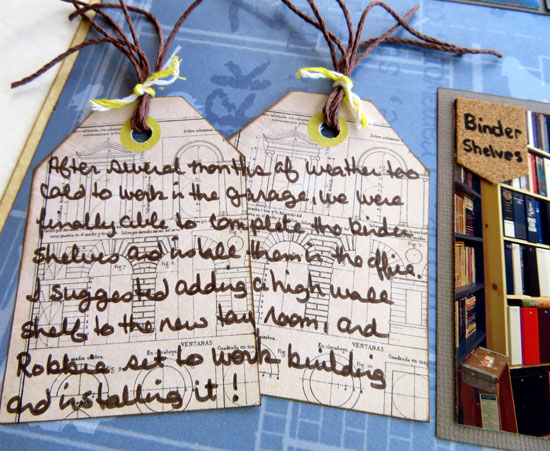 After several months of weather too
cold to work in the garage, we were
finally able to complete the binder
shelves and install them in the office.
I suggested adding a high wall
shelf to the new law room, and
Robbie set to work building
and installing it!
Binder
Shelves
VENTANAS
VENTANAS